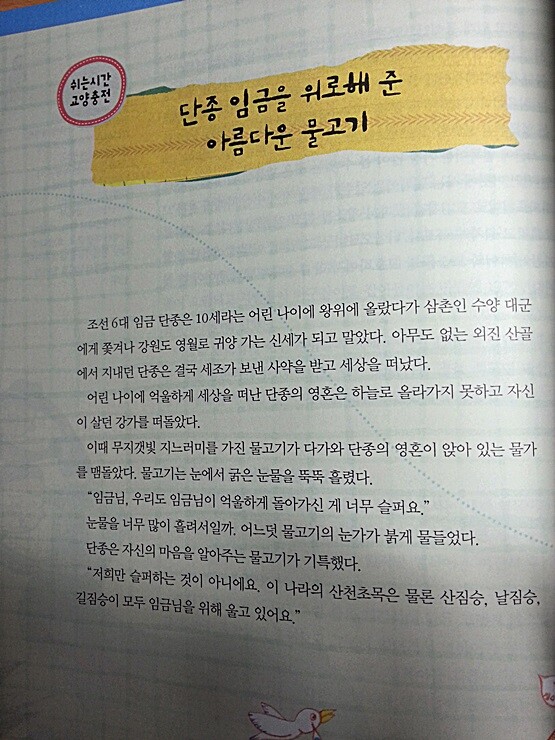 쉬는시간
교양충전
단종 임금을 위로해 준
아름다운 물고기
조선 6대 임금 단종은 10세라는 어린 나이에 왕위에 올랐다가 삼촌인 수양 대군
에게 쫓겨나 강원도 영월로 귀양 가는 신세가 되고 말았다. 아무도 없는 외진 산골
에서 지내던 단종은 결국 세조가 보낸 사약을 받고 세상을 떠났다.
어린 나이에 억울하게 세상을 떠난 단종의 영혼은 하늘로 올라가지 못하고 자신
이 살던 강가를 떠돌았다.
이때 무지갯빛 지느러미를 가진 물고기가 다가와 단종의 영혼이 앉아 있는 물가
를 맴돌았다. 물고기는 눈에서 굵은 눈물을 뚝뚝 흘렸다.
“임금님, 우리도 임금님이 억울하게 돌아가신 게 너무 슬퍼요.”
눈물을 너무 많이 흘려서일까. 어느덧 물고기의 눈가가 붉게 물들었다.
단종은 자신의 마음을 알아주는 물고기가 기특했다.
“저희만 슬퍼하는 것이 아니에요. 이 나라의 산천초목은 물론 산짐승, 날짐승,
길짐승이 모두 임금님을 위해 울고 있어요.”